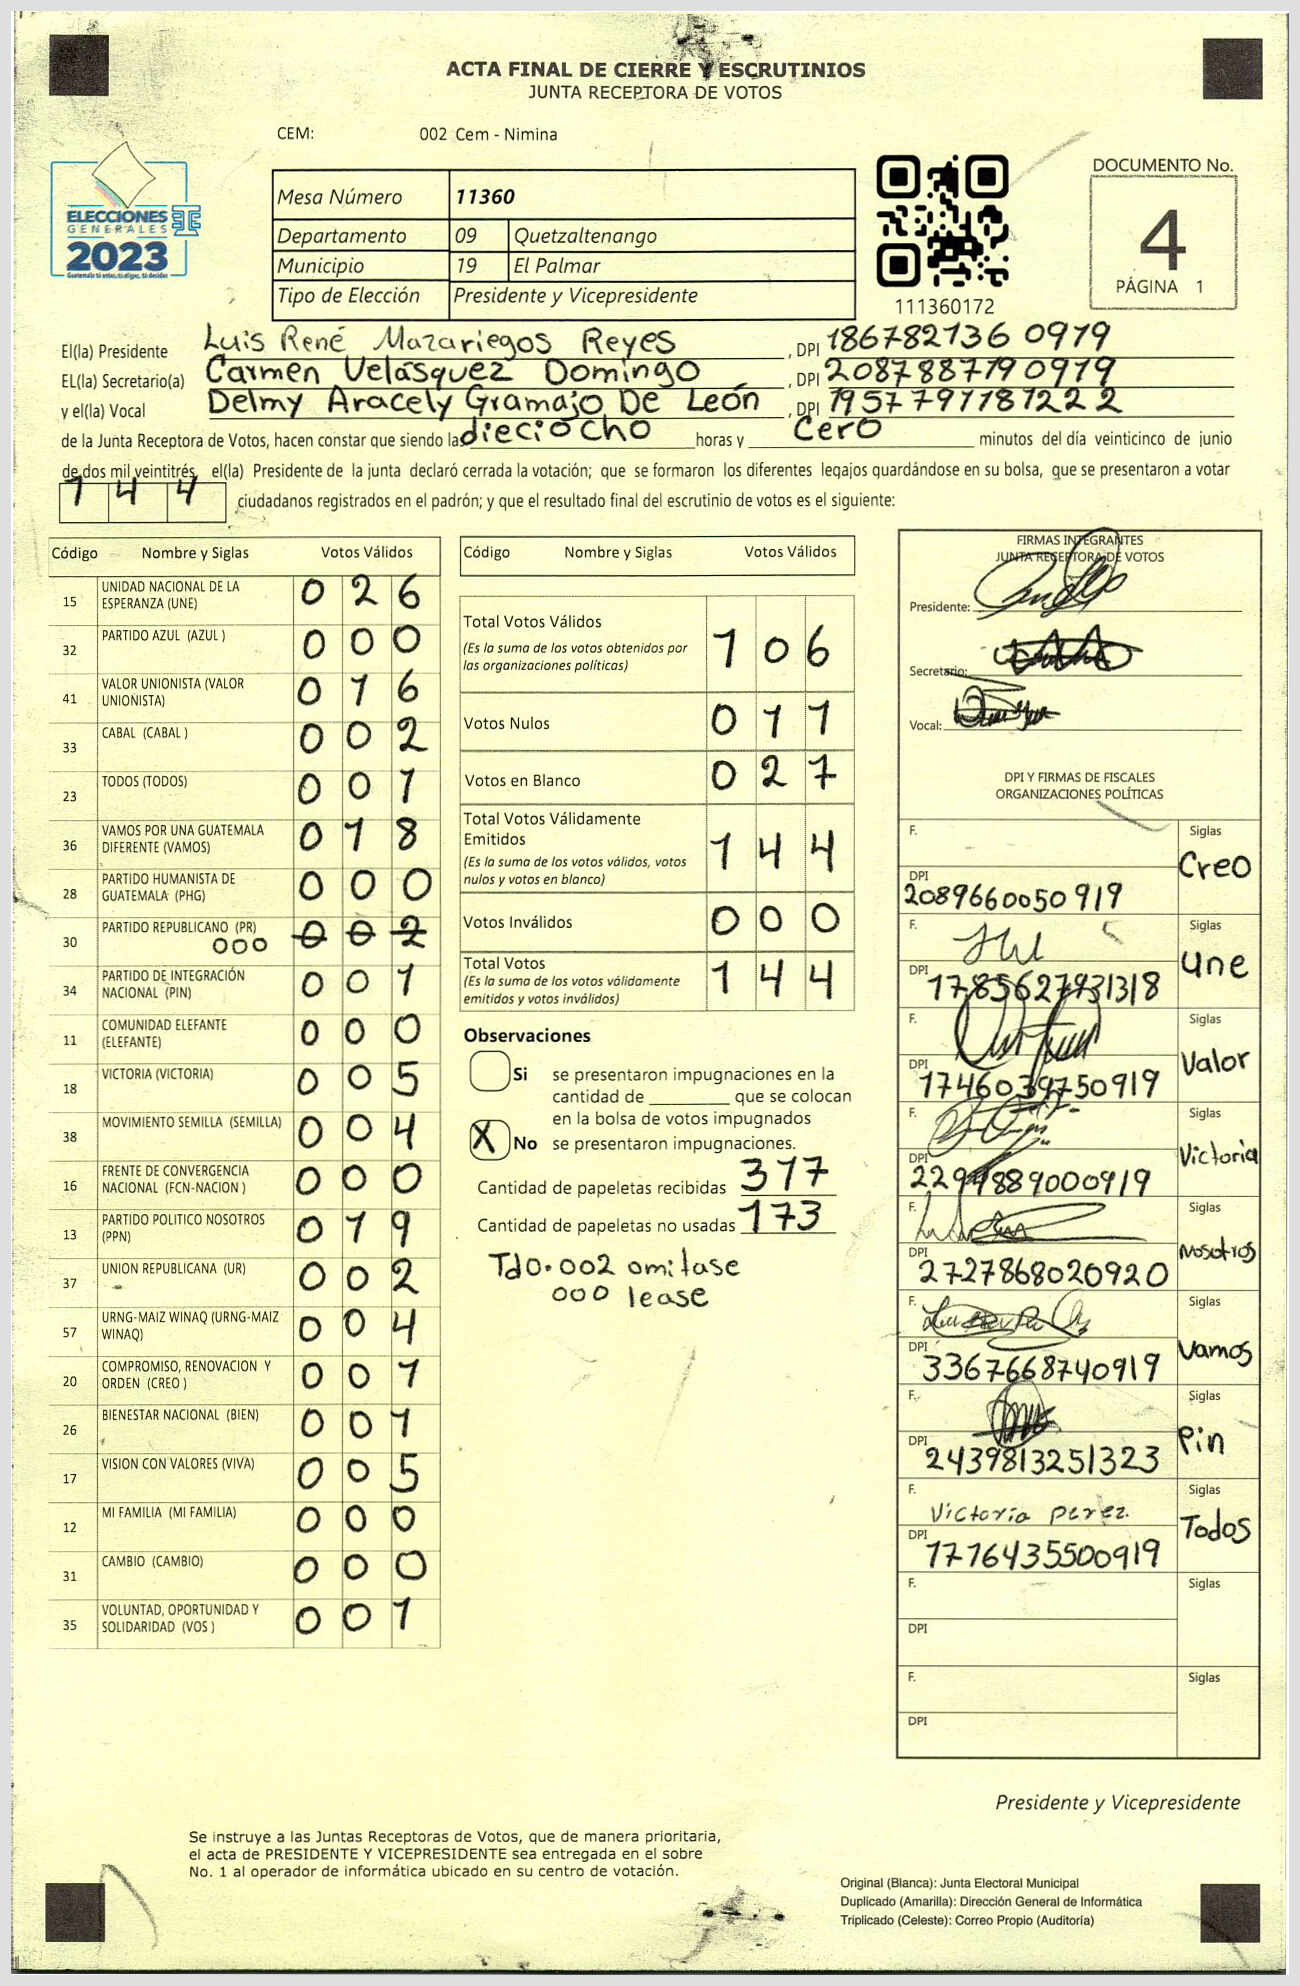 ACTA FINAL DE CIERRE Y ESCRUTINIOS
JUNTA RECEPTORA DE VOTOS
CEM: 002 Cem - Nimina
ELECCIONES
GENERALES
2023
Guatemala tú eres, tú eliges, tú decides
Mesa Número 11360
Departamento 09 Quetzaltenango
Municipio 19 El Palmar
Tipo de Elección Presidente y Vicepresidente
111360172
DOCUMENTO No.
4
PÁGINA 1
El(la) Presidente Luis René Mazariegos Reyes, DPI 186782136 0919
EL(la) Secretario(a) Carmen Velásquez Domingo, DPI 2087887190919
y el(la) Vocal Delmy Aracely Gramajo De León, DPI 1957791181222
de la Junta Receptora de Votos, hacen constar que siendo las dieciocho horas y cero minutos del día veinticinco de junio
de dos mil veintitrés, el(la) Presidente de la junta declaró cerrada la votación; que se formaron los diferentes legajos guardándose en su bolsa, que se presentaron a votar
144 ciudadanos registrados en el padrón; y que el resultado final del escrutinio de votos es el siguiente:
Código Nombre y Siglas Votos Válidos
15 UNIDAD NACIONAL DE LA ESPERANZA (UNE) 026
32 PARTIDO AZUL (AZUL ) 000
41 VALOR UNIONISTA (VALOR UNIONISTA) 016
33 CABAL (CABAL ) 002
23 TODOS (TODOS) 001
36 VAMOS POR UNA GUATEMALA DIFERENTE (VAMOS) 018
28 PARTIDO HUMANISTA DE GUATEMALA (PHG) 000
30 PARTIDO REPUBLICANO (PR) 000 002
34 PARTIDO DE INTEGRACIÓN NACIONAL (PIN) 001
11 COMUNIDAD ELEFANTE (ELEFANTE) 000
18 VICTORIA (VICTORIA) 005
38 MOVIMIENTO SEMILLA (SEMILLA) 004
16 FRENTE DE CONVERGENCIA NACIONAL (FCN-NACION ) 000
13 PARTIDO POLITICO NOSOTROS (PPN) 019
37 UNION REPUBLICANA (UR) 002
57 URNG-MAIZ WINAQ (URNG-MAIZ WINAQ) 004
20 COMPROMISO, RENOVACION Y ORDEN (CREO ) 001
26 BIENESTAR NACIONAL (BIEN) 001
17 VISION CON VALORES (VIVA) 005
12 MI FAMILIA (MI FAMILIA) 000
31 CAMBIO (CAMBIO) 000
35 VOLUNTAD, OPORTUNIDAD Y SOLIDARIDAD (VOS ) 001
Código Nombre y Siglas Votos Válidos
Total Votos Válidos 106
(Es la suma de los votos obtenidos por
las organizaciones políticas)
Votos Nulos 011
Votos en Blanco 027
Total Votos Válidamente
Emitidos 144
(Es la suma de los votos válidos, votos
nulos y votos en blanco)
Votos Inválidos 000
Total Votos 144
(Es la suma de los votos válidamente
emitidos y votos inválidos)
Observaciones
Si se presentaron impugnaciones en la
cantidad de ________ que se colocan
en la bolsa de votos impugnados
X No se presentaron impugnaciones.
Cantidad de papeletas recibidas 317
Cantidad de papeletas no usadas 173
Tdo. 002 omitase
000 lease
FIRMAS INTEGRANTES
JUNTA RECEPTORA DE VOTOS
Presidente:
Secretario:
Vocal:
DPI Y FIRMAS DE FISCALES
ORGANIZACIONES POLÍTICAS
F. Siglas Creo
DPI 2089660050919
F. Siglas Une
DPI 1785627931318
F. Siglas Valor
DPI 1746039750919
F. Siglas Victoria
DPI
F. Siglas Nosotros
DPI 2727868020920
F. Siglas Vamos
DPI 3367668740919
F. Siglas Pin
DPI 2439813251323
F. Victoria perez. Siglas Todos
DPI 1776435500919
F. Siglas
DPI
F. Siglas
DPI
Presidente y Vicepresidente
Se instruye a las Juntas Receptoras de Votos, que de manera prioritaria,
el acta de PRESIDENTE Y VICEPRESIDENTE sea entregada en el sobre
No. 1 al operador de informática ubicado en su centro de votación.
Original (Blanca): Junta Electoral Municipal
Duplicado (Amarilla): Dirección General de Informática
Triplicado (Celeste): Correo Propio (Auditoría)